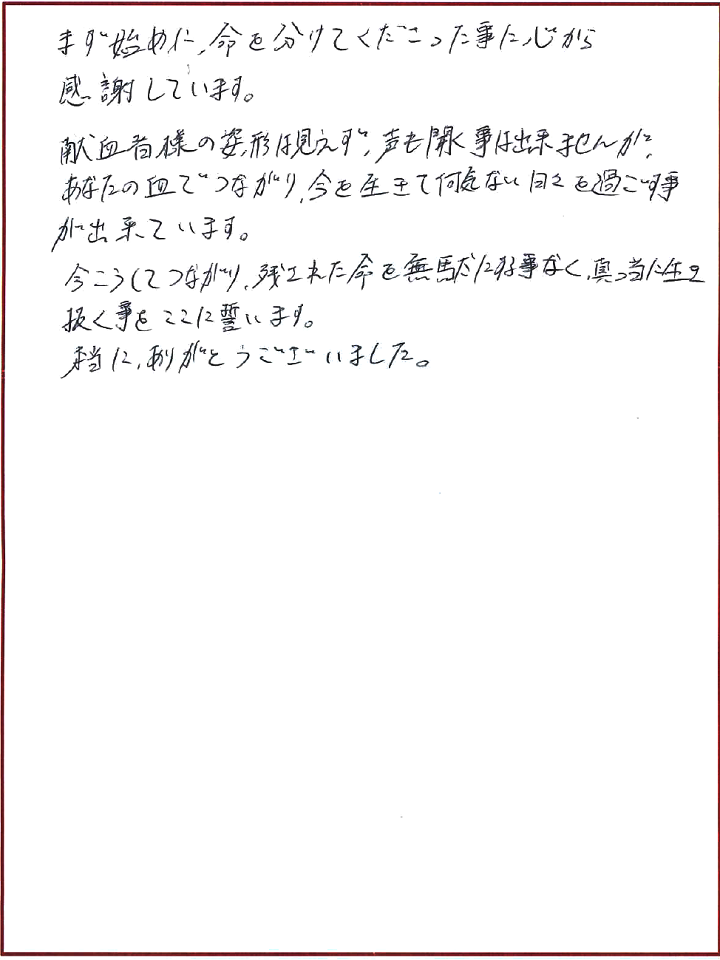 まず始めに、命を分けてくださった事に、心から
感謝しています。
献血者様の姿、形は見えず、声も聞く事は出来ませんが、
あなたの血でつながり、今を生きて何気ない日々を過ごす事
が出来ています。
今こうしてつながり、残された命を無駄にする事なく、真っ当に生き
抜く事をここに誓います。
本当に、ありがとうございました。